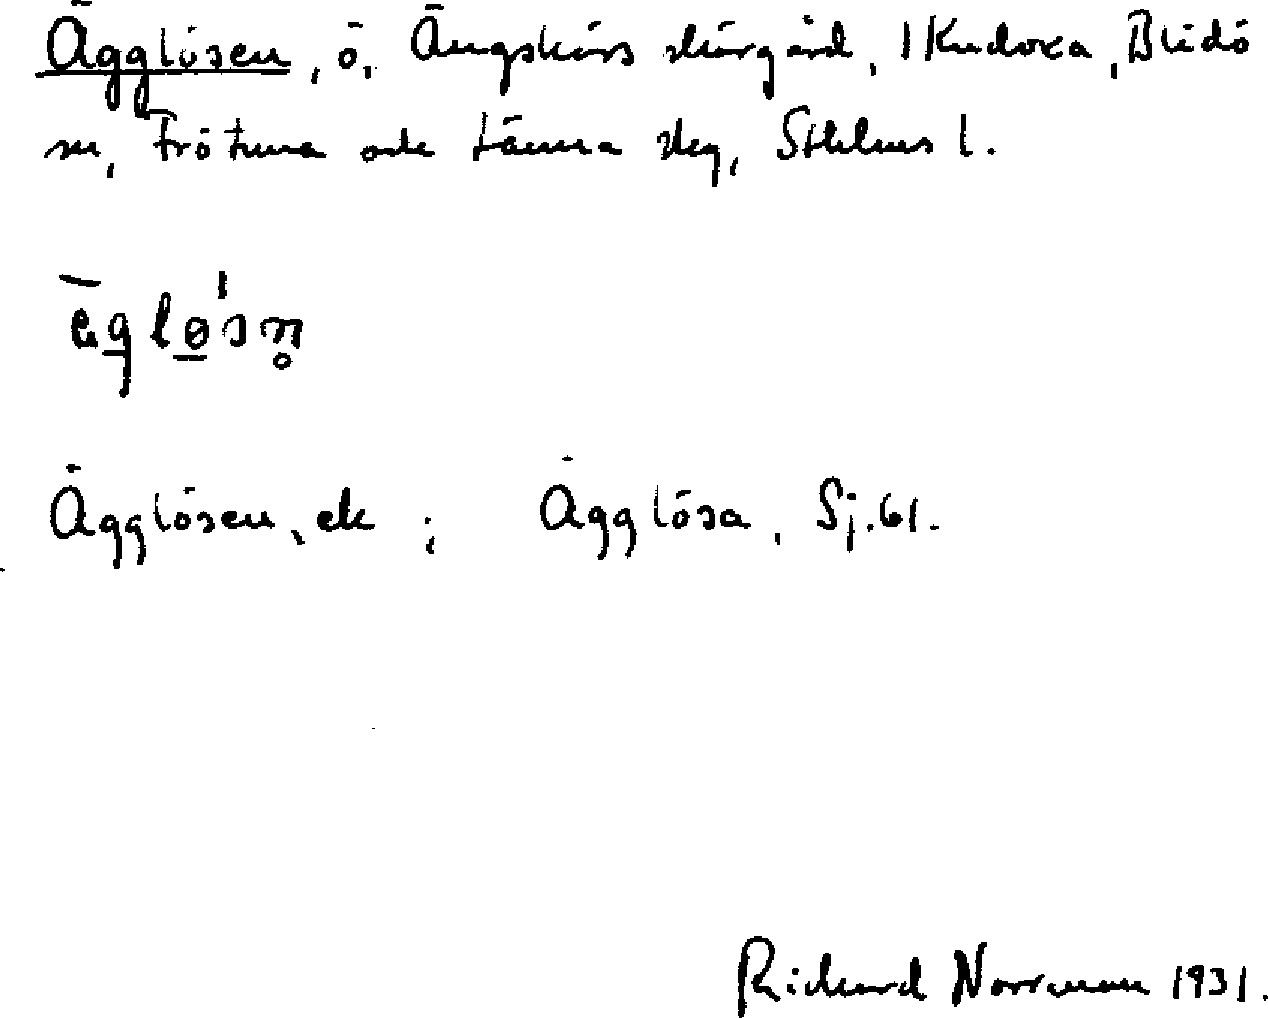 Ägglösen, ö, Ängskärs skärgård, 1 Kudoxa, Blidö
sn, Frötuna och Länna skg, Sthlms l.
ägglø´sn̥
Ägglösen, ek ; Ägglösa, Sj. 61.
Richard Norrman 1931.